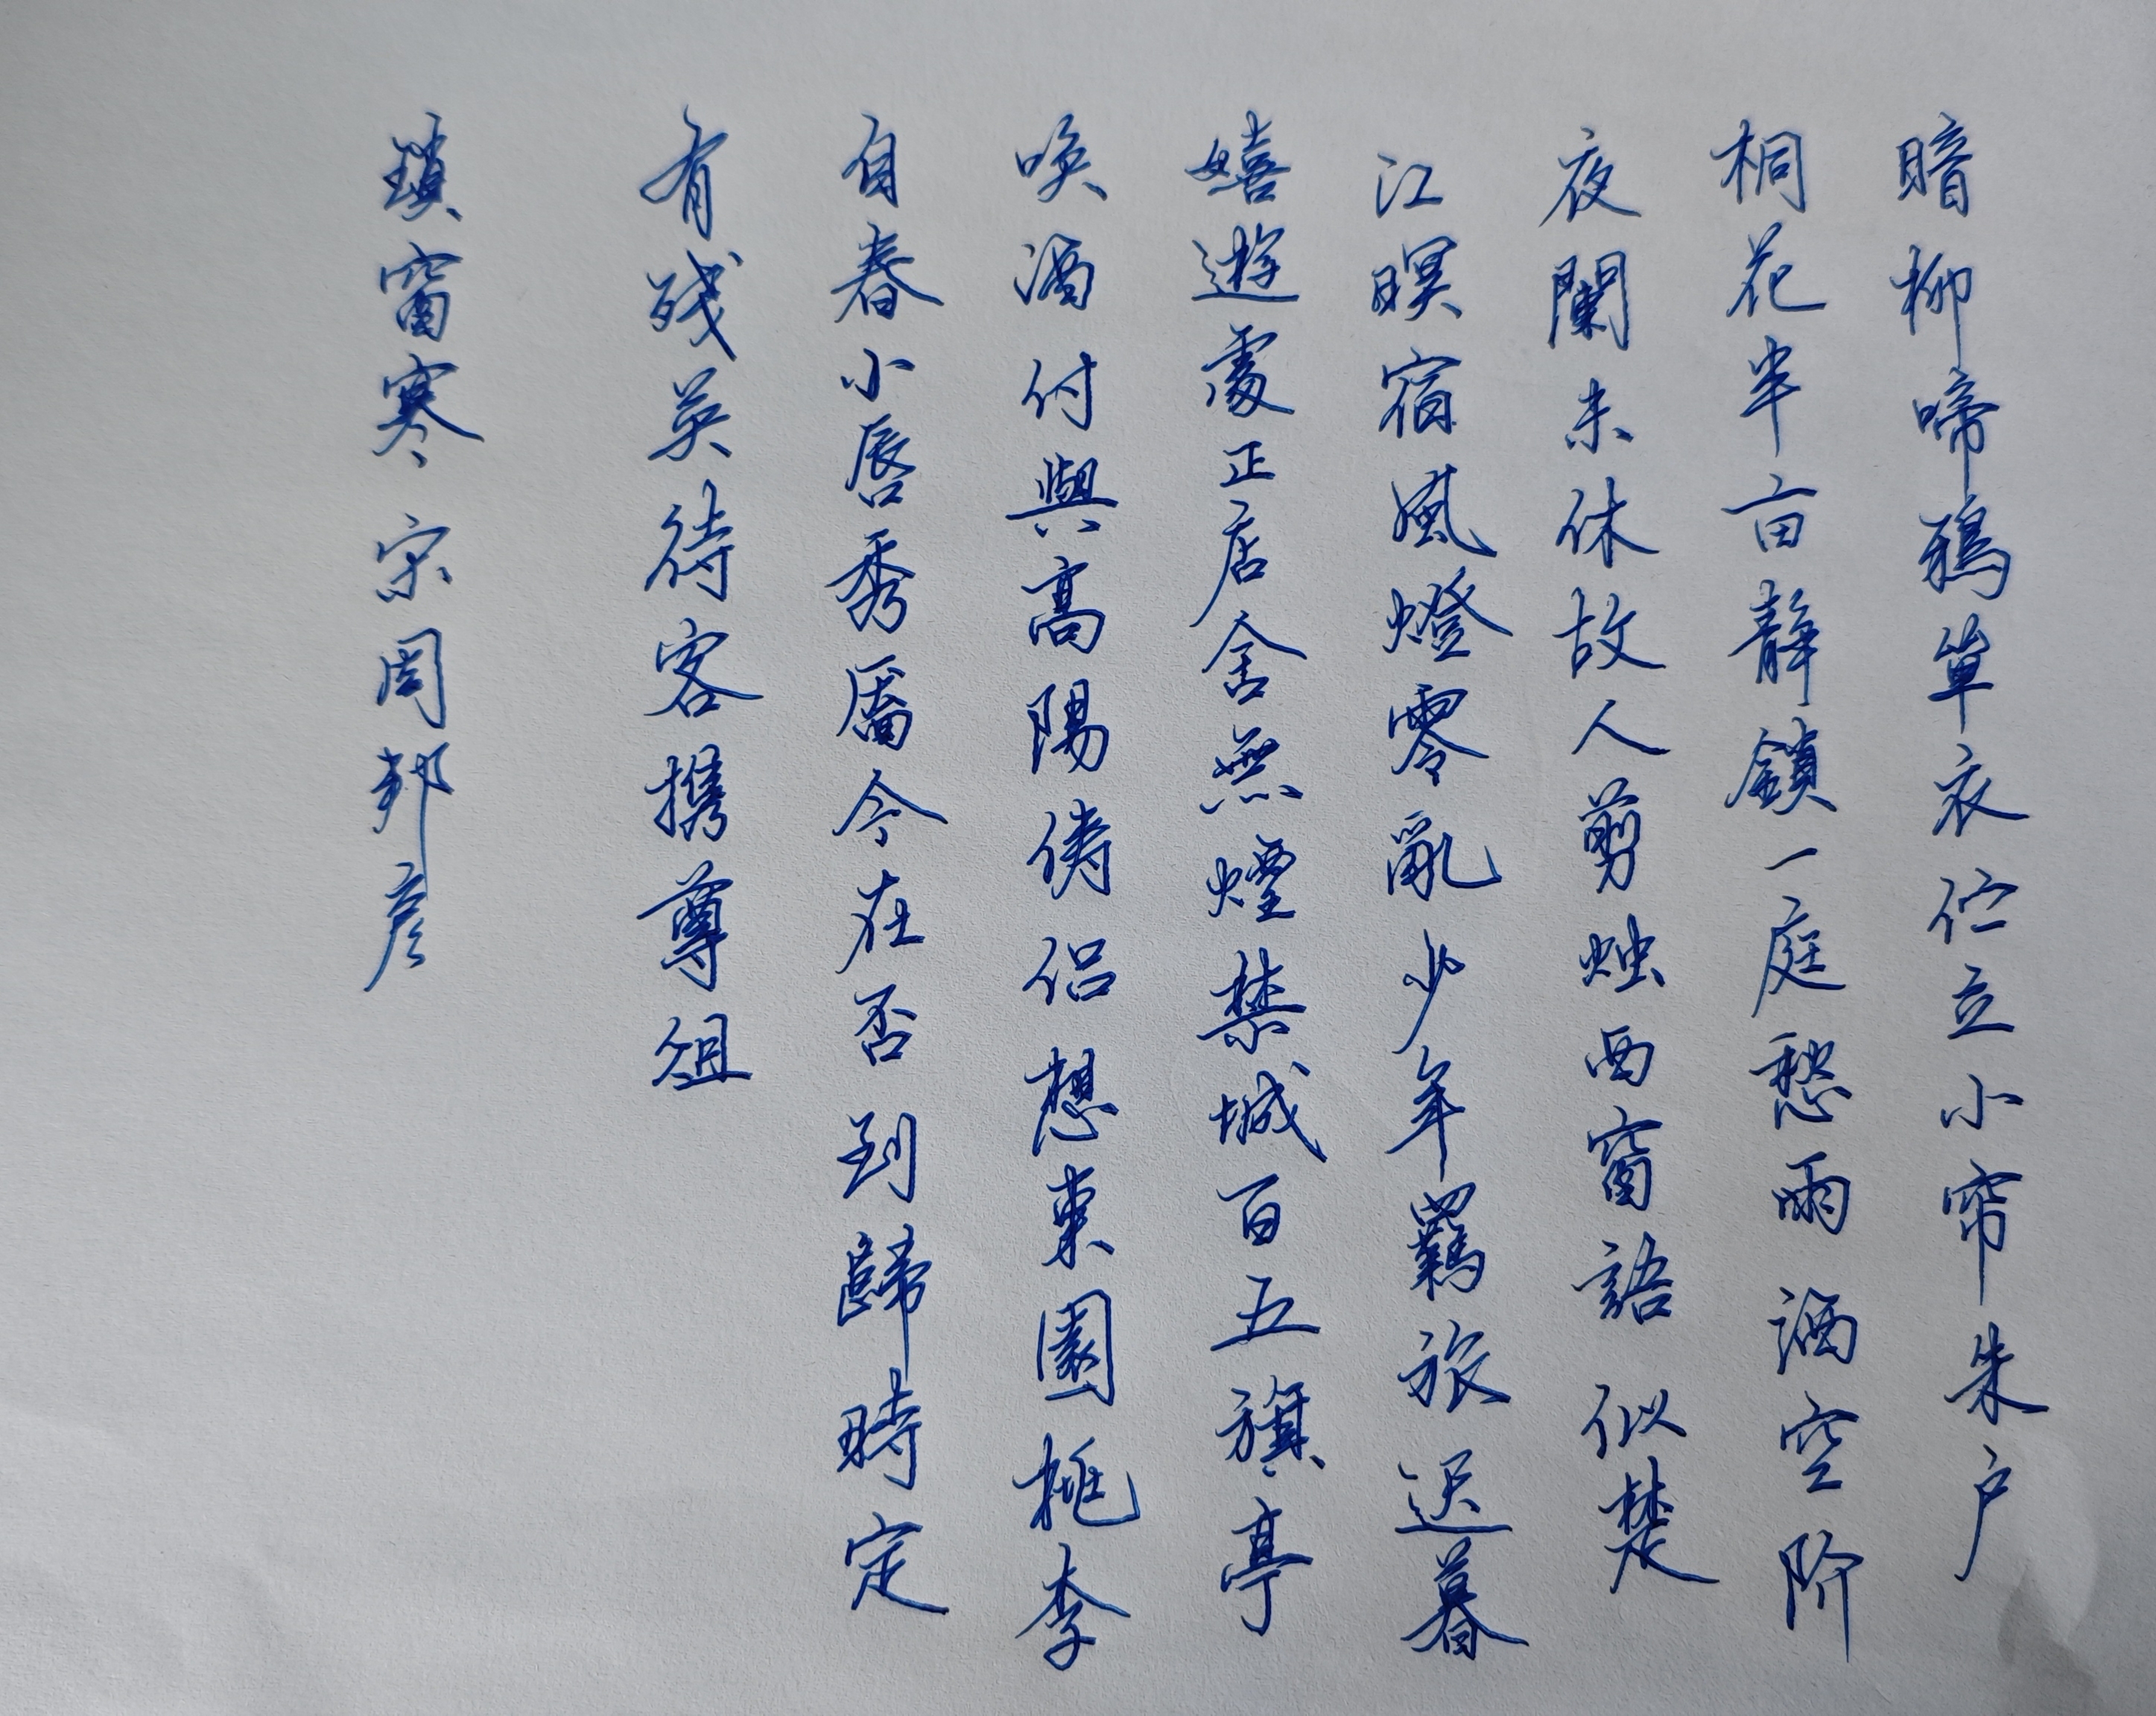 暗柳啼鴉单衣伫立小帘朱户
桐花半亩静鎖一庭愁雨洒空阶
夜闌未休故人剪烛西窗語似楚
江暝宿風燈零亂少年羈旅迟暮
嬉遊處正店舍無煙禁城百五旗亭
唤酒付與高陽儔侣想東園桃李
自春小唇秀靥今在否到歸時定
有残英待客携尊俎
鎖窗寒 宋周邦彦